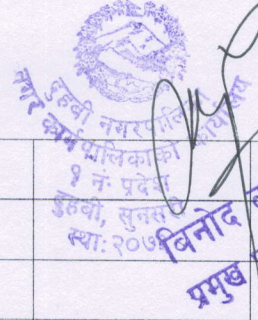 दुहवी नगरपालिका
नगर कार्यपालिकाको कार्यालय
१ नं. प्रदेश
दुहवी, सुनसरी
स्था: २०७
बिनोद
प्रमुख